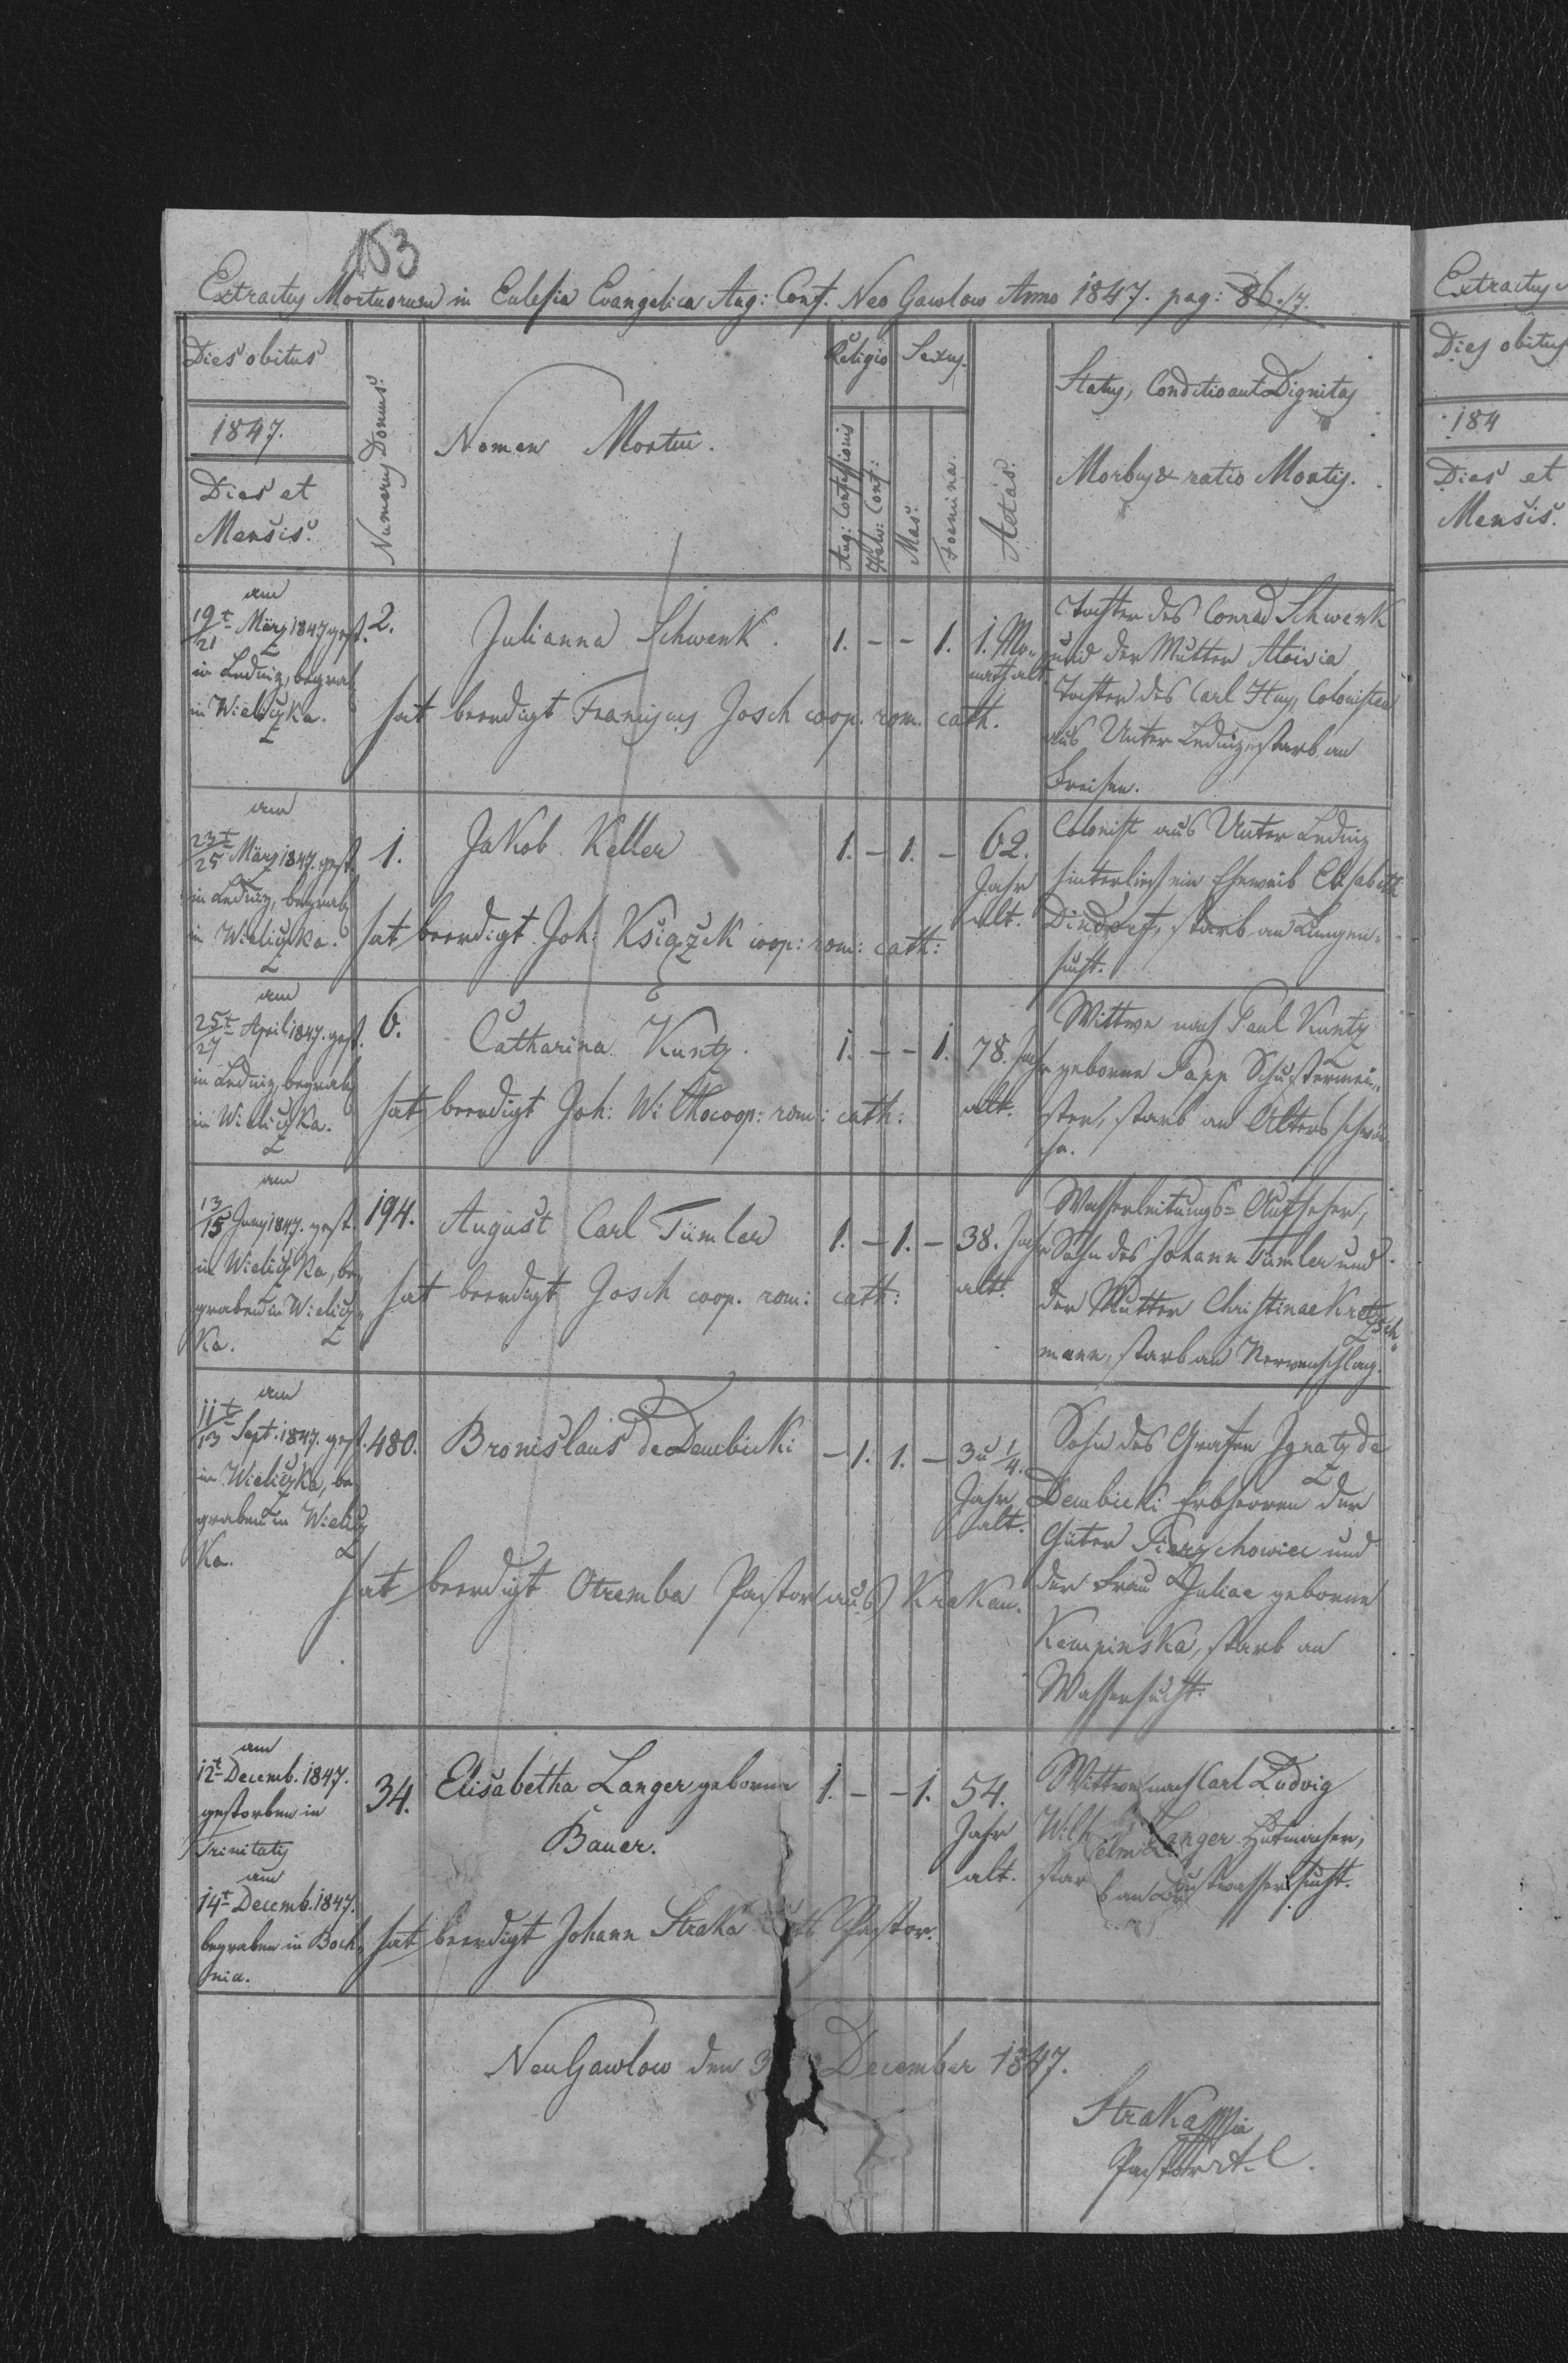 153
Extractus Mortuorum in Eclesia Evangelica Aug: Conf. Neo Gawlow Anno 1847. pag: 86./7.
Dies obitus
1847.
Dies et
Mensis.
Numerus Domus.
Nomen Mortui.
Religio
Aug: Confessionis
Helv: Conf:
Sexus.
Mas.
Foemina.
Aetas.
Status, Conditio aut Dignitas
Morbus & ratio Mortis.
am
19t/21 März 1847 gest.
in Lednig, begrab
in Wieliczka.
2.
Julianna Schwenk.
1. - - 1.
1. Mo-
nath alt.
Tochter des Conrad Schwenk
und der Mutter Aloisia
Tochter des Carl Huy, Colonisten
aus Unter Lednig, starb an
Freisen.
hat beerdigt Franciscus Josch coop. rom. cath.
am
23t/25 März 1847. gest.
in Lednig, begrab
in Wieliczka.
1.
Jakob Keller
1. - 1. -
62.
Jahr
alt.
Colonist aus Unter Lednig
hinterließ ein Eheweib Elisabeth
Dindorf, starb an Lungen-
sucht.
hat beerdigt Joh: Książek coop: rom: cath:
am
25t/27 April 1847. gest.
in Lednig, begrab
in Wieliczka.
6.
Catharina Kuntz.
1. - - 1.
78. Jahr
alt.
Wittwe nach Paul Kuntz
geborne Papp Schustermei-
ster, starb an Altersschwä
che.
hat beerdigt Joh: Wilk coop: rom: cath:
am
13/15 Juny 1847. gest.
in Wieliczka, be-
graben in Wielicz-
ka.
194.
August Carl Tümler
1. - 1. -
38. Jahr
alt.
Wasserleitungs-Aufseher,
Sohn des Johann Tümler und
der Mutter Christinae Kretzsch-
mann, starb an Nervenschlag.
hat beerdigt Josch coop. rom: cath:
am
11t/13 Sept. 1847. gest.
in Wieliczka, be-
graben in Wielicz
ka.
480.
Bronislaus de Dembicki
- 1. 1. -
3 u 1/4.
Jahr
alt.
Sohn des Grafen Ignatz de
Dembicki Erbherren der
Güter Pierzchowice und
der Frau Juliae geborne
Kempinska, starb an
Wassersucht.
hat beerdigt Otremba Pastor aus Krakau.
am
12t Decemb. 1847.
gestorben in
Trinitatis
am
14t Decemb. 1847.
begraben in Boch-
nia.
34.
Elisabetha Langer geborne
Bauer.
1. - - 1.
54.
Jahr
alt.
Wittwe nach Carl Ludvig
Wilhelm Langer Hutmacher,
starb an Brustwassersucht.
hat beerdigt Johann Straka Pastor.
Neu Gawlow den 3 December 1847.
Straka
Pastor A. C.
Extractus
Dies obitus
184
Dies et
Mensis.